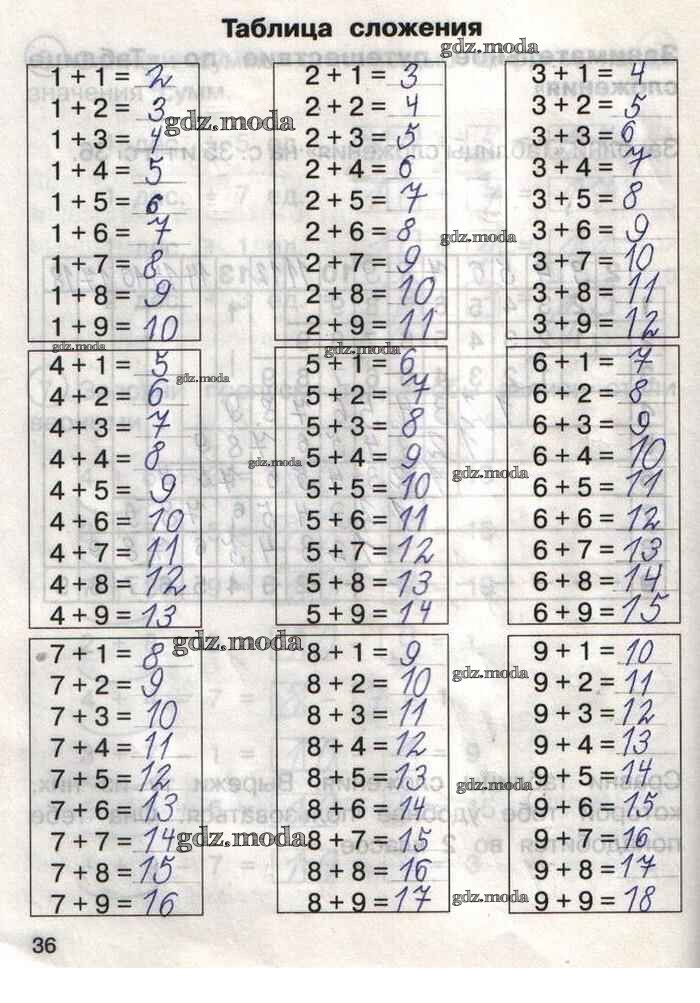 Таблица сложения
gdz.moda
1 + 1 = 2
1 + 2 = 3
1 + 3 = 4
1 + 4 = 5
1 + 5 = 6
1 + 6 = 7
1 + 7 = 8
1 + 8 = 9
1 + 9 = 10
gdz.moda
2 + 1 = 3
2 + 2 = 4
2 + 3 = 5
2 + 4 = 6
2 + 5 = 7
2 + 6 = 8
2 + 7 = 9
2 + 8 = 10
2 + 9 = 11
gdz.moda
3 + 1 = 4
3 + 2 = 5
3 + 3 = 6
3 + 4 = 7
3 + 5 = 8
3 + 6 = 9
3 + 7 = 10
3 + 8 = 11
3 + 9 = 12
gdz.moda
gdz.moda
4 + 1 = 5
4 + 2 = 6
4 + 3 = 7
4 + 4 = 8
4 + 5 = 9
4 + 6 = 10
4 + 7 = 11
4 + 8 = 12
4 + 9 = 13
gdz.moda
gdz.moda
5 + 1 = 6
5 + 2 = 7
5 + 3 = 8
5 + 4 = 9
5 + 5 = 10
5 + 6 = 11
5 + 7 = 12
5 + 8 = 13
5 + 9 = 14
gdz.moda
6 + 1 = 7
6 + 2 = 8
6 + 3 = 9
6 + 4 = 10
6 + 5 = 11
6 + 6 = 12
6 + 7 = 13
6 + 8 = 14
6 + 9 = 15
gdz.moda
7 + 1 = 8
7 + 2 = 9
7 + 3 = 10
7 + 4 = 11
7 + 5 = 12
7 + 6 = 13
7 + 7 = 14
7 + 8 = 15
7 + 9 = 16
gdz.moda
8 + 1 = 9
8 + 2 = 10
8 + 3 = 11
8 + 4 = 12
8 + 5 = 13
8 + 6 = 14
8 + 7 = 15
8 + 8 = 16
8 + 9 = 17
gdz.moda
gdz.moda
gdz.moda
9 + 1 = 10
9 + 2 = 11
9 + 3 = 12
9 + 4 = 13
9 + 5 = 14
9 + 6 = 15
9 + 7 = 16
9 + 8 = 17
9 + 9 = 18
36